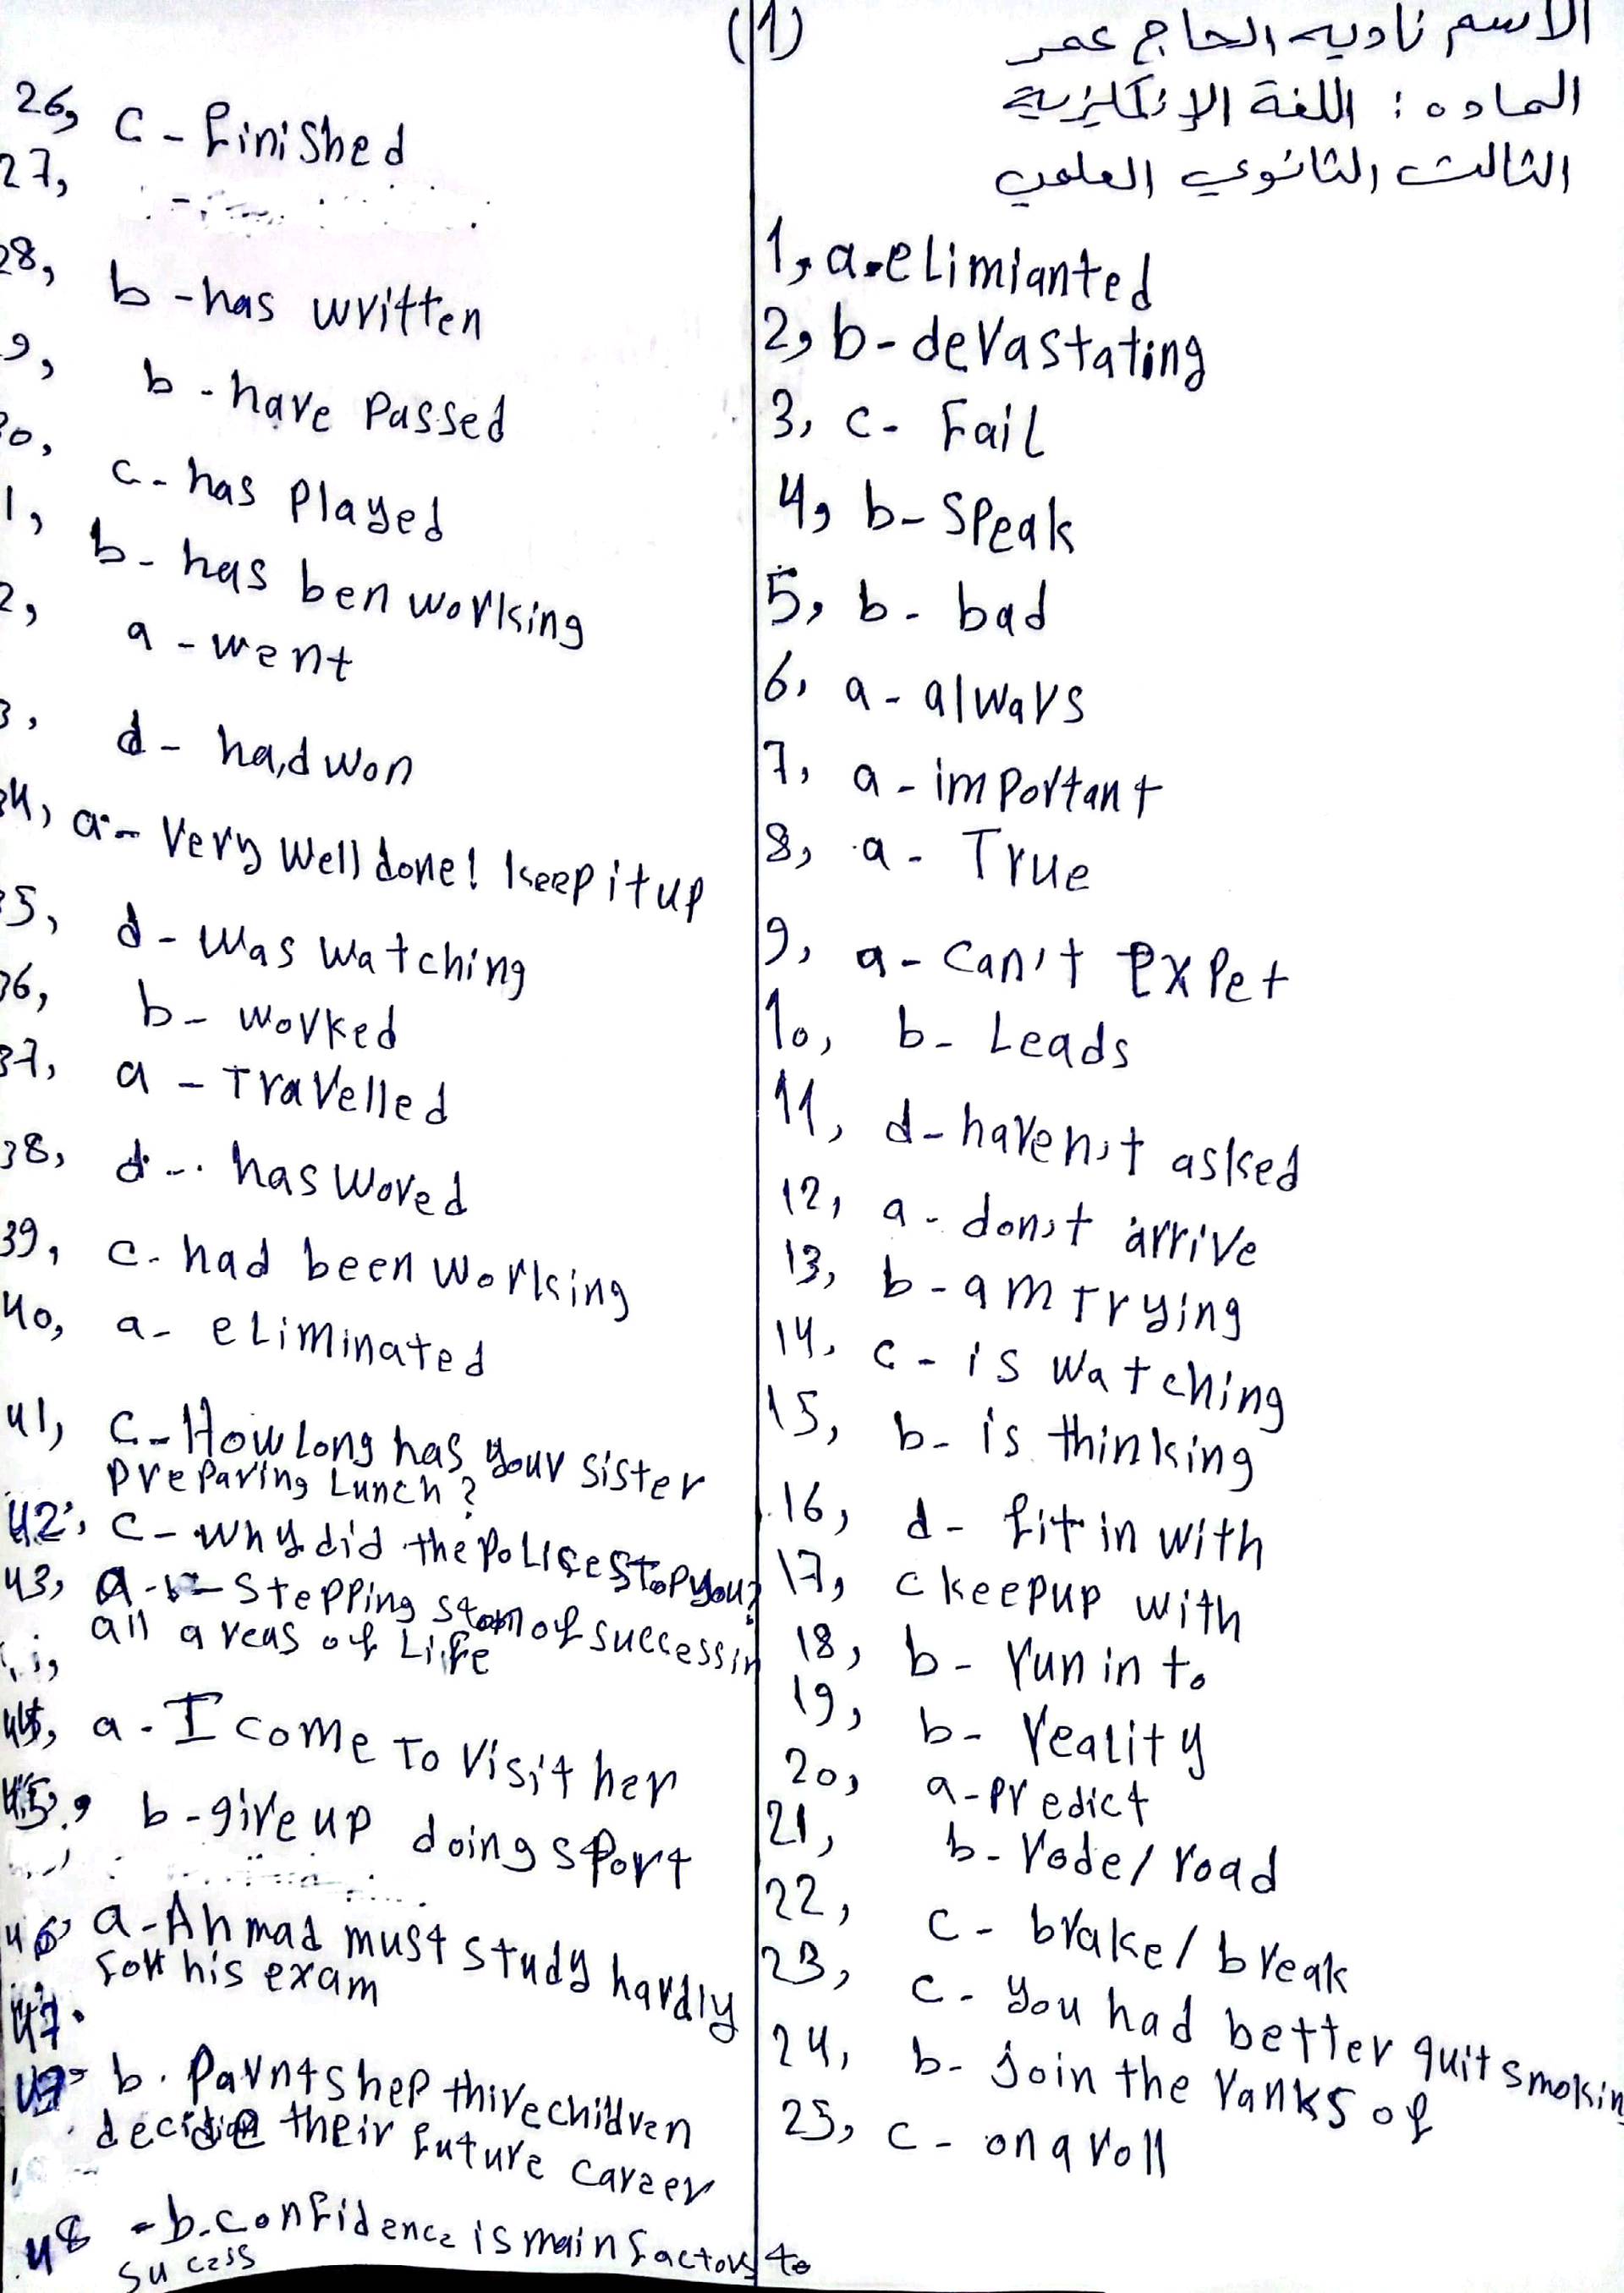 (1)
الاسم ناديه الحاج عمر
الماده : اللغة الإنكليزية
الثالث الثانوي العلمي
1, a. elimianted
2, b - devastating
3, c - Fail
4, b - Speak
5, b - bad
6, a - always
7, a - important
8, a - True
9, a - can't Expet
10, b - Leads
11, d - haven't asked
12, a - don't arrive
13, b - am Trying
14, c - is watching
15, b - is thinking
16, d - fit in with
17, c keepup with
18, b - run in to
19, b - reality
20, a - predict
21, b - rode / road
22, c - brake / break
23, c - you had better quit smokin
24, b - join the ranks of
25, c - on a roll
26, c - finished
27,
28, b - has written
9, b - have Passed
30, c - has Played
1, b - has ben working
2, a - went
3, d - had won
34, a - Very Well done! keep it up
35, d - was watching
36, b - worked
37, a - Travelled
38, d - has woved
39, c - had been working
40, a - eliminated
41, c - How Long has your sister
preparing Lunch?
42, c - why did the police stop you?
43, a - stepping of success in
all areas of Life
44, a - I come To Visit her
45, b - give up doing sport
46, a - Ahmad must study hardly
for his exam
47.
47- b. Parntshep thirechildren
their future career
48 - b. confidence is main factors to
sucess